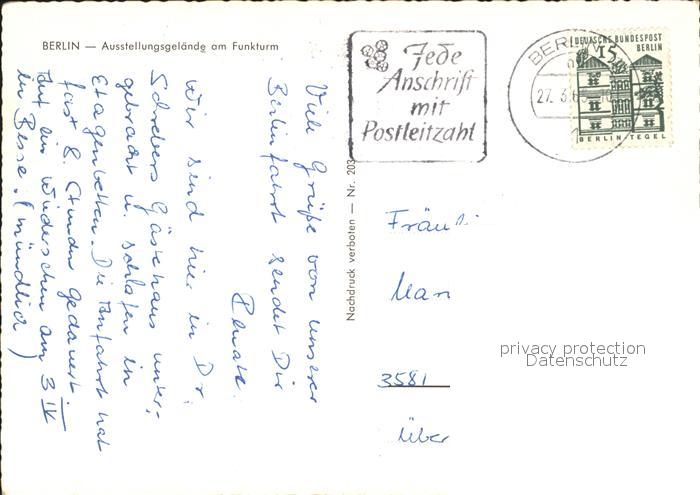 BERLIN — Ausstellungsgelände am Funkturm
Jede
Anschrift
mit
Postleitzahl
BERLIN
27. 3. 65
15
DEUTSCHE BUNDESPOST
BERLIN
BERLIN-TEGEL
Viele Grüße von unserer
Berlinfahrt sendet Dir
Renate.
Wir sind hier in Dr.
Schreibers Gästehaus unter-
gebracht u. schlafen in
Etagenbetten. Die Anfahrt hat
fast 8. Stunden gedauert.
Auf ein Wiedersehen am 3. IV
in Besse. (mündlich)
Nachdruck verboten — Nr. 203
Fräu
Mar
3581
über
privacy protection
Datenschutz